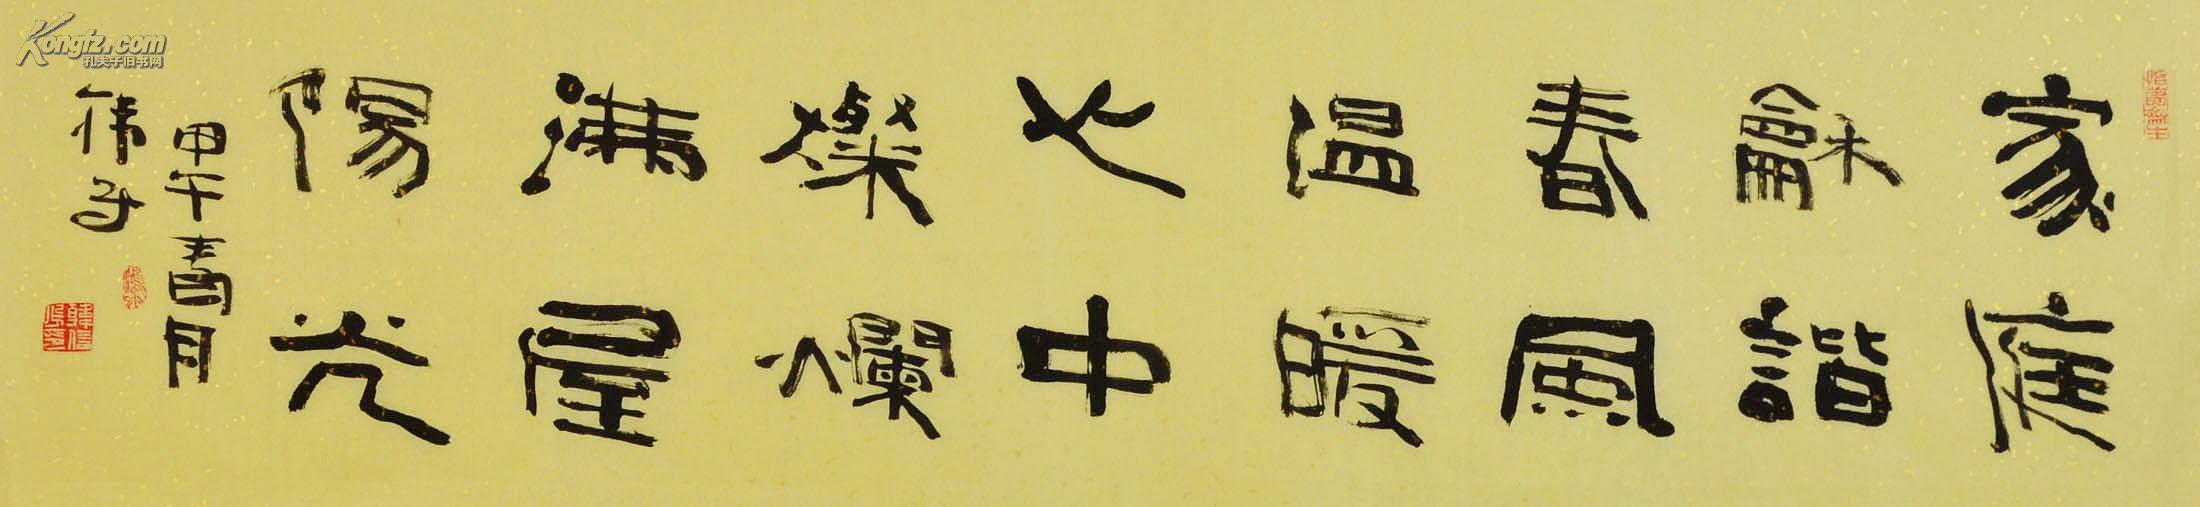 家庭
龢諧
春風
温暖
心中
燦爛
滿屋
陽光
甲午春月
Kongfz.com
孔夫子旧书网